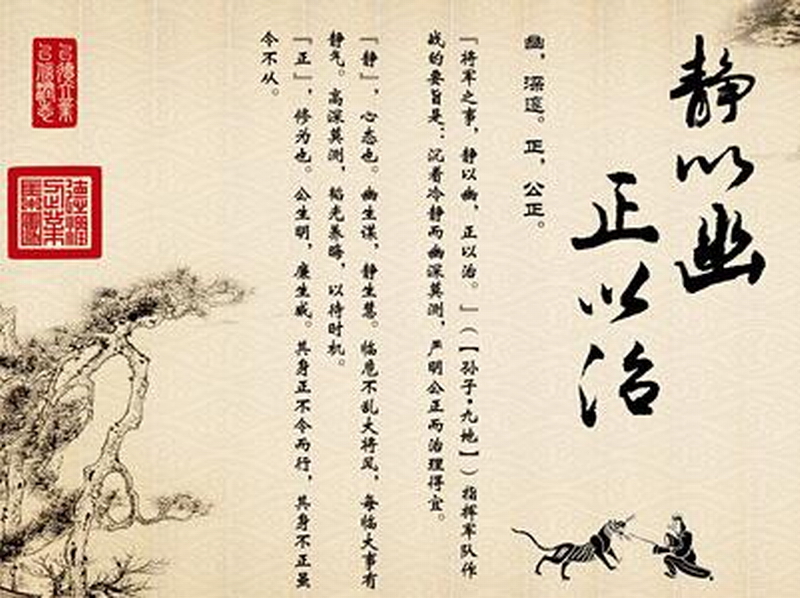 静以幽
正以治
幽，深邃。正，公正。
「将军之事，静以幽，正以治。」（【孙子·九地】）指挥军队作
战的要旨是：沉着冷静而幽深莫测，严明公正而治理得宜。
「静」，心态也。幽生谋，静生慧。临危不乱大将风，每临大事有
静气。高深莫测，韬光养晦，以待时机。
「正」，修为也。公生明，廉生威。其身正不令而行，其身不正虽
令不从。